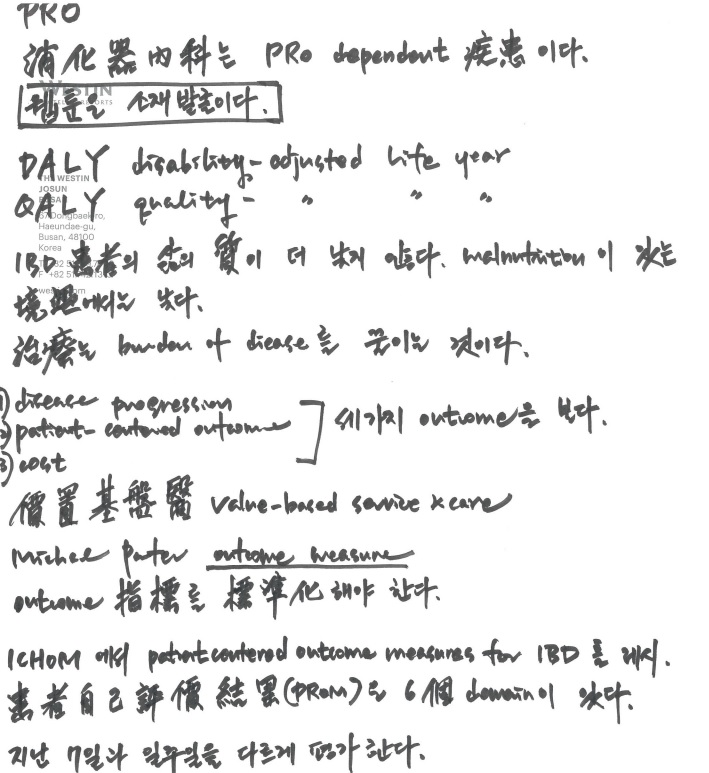 PRO
消化器內科는 PRO dependent 疾患이다.
웹툰은 소재 발굴이다.
DALY disability-adjusted life year
QALY quality- 〃 〃 〃
IBD 患者의 삶의 質이 더 낮지 않다. malnutrition이 있는
境遇에서는 낮다.
治療는 burden of diease를 줄이는 것이다.
① disease progression
② patient-centered outcome
③ cost
세가지 outcome을 본다.
價置基盤醫 value-based service x care
Michael Porter outcome measure
outcome 指標를 標準化해야 한다.
ICHOM에서 patient centered outcome measures for IBD를 제시.
患者自己評價結果(PROM)은 6個 domain이 있다.
지난 7일과 일주일을 다르게 평가한다.
WESTIN
THE WESTIN
JOSUN
67 Dongbaek-ro,
Haeundae-gu,
Busan, 48100
Korea